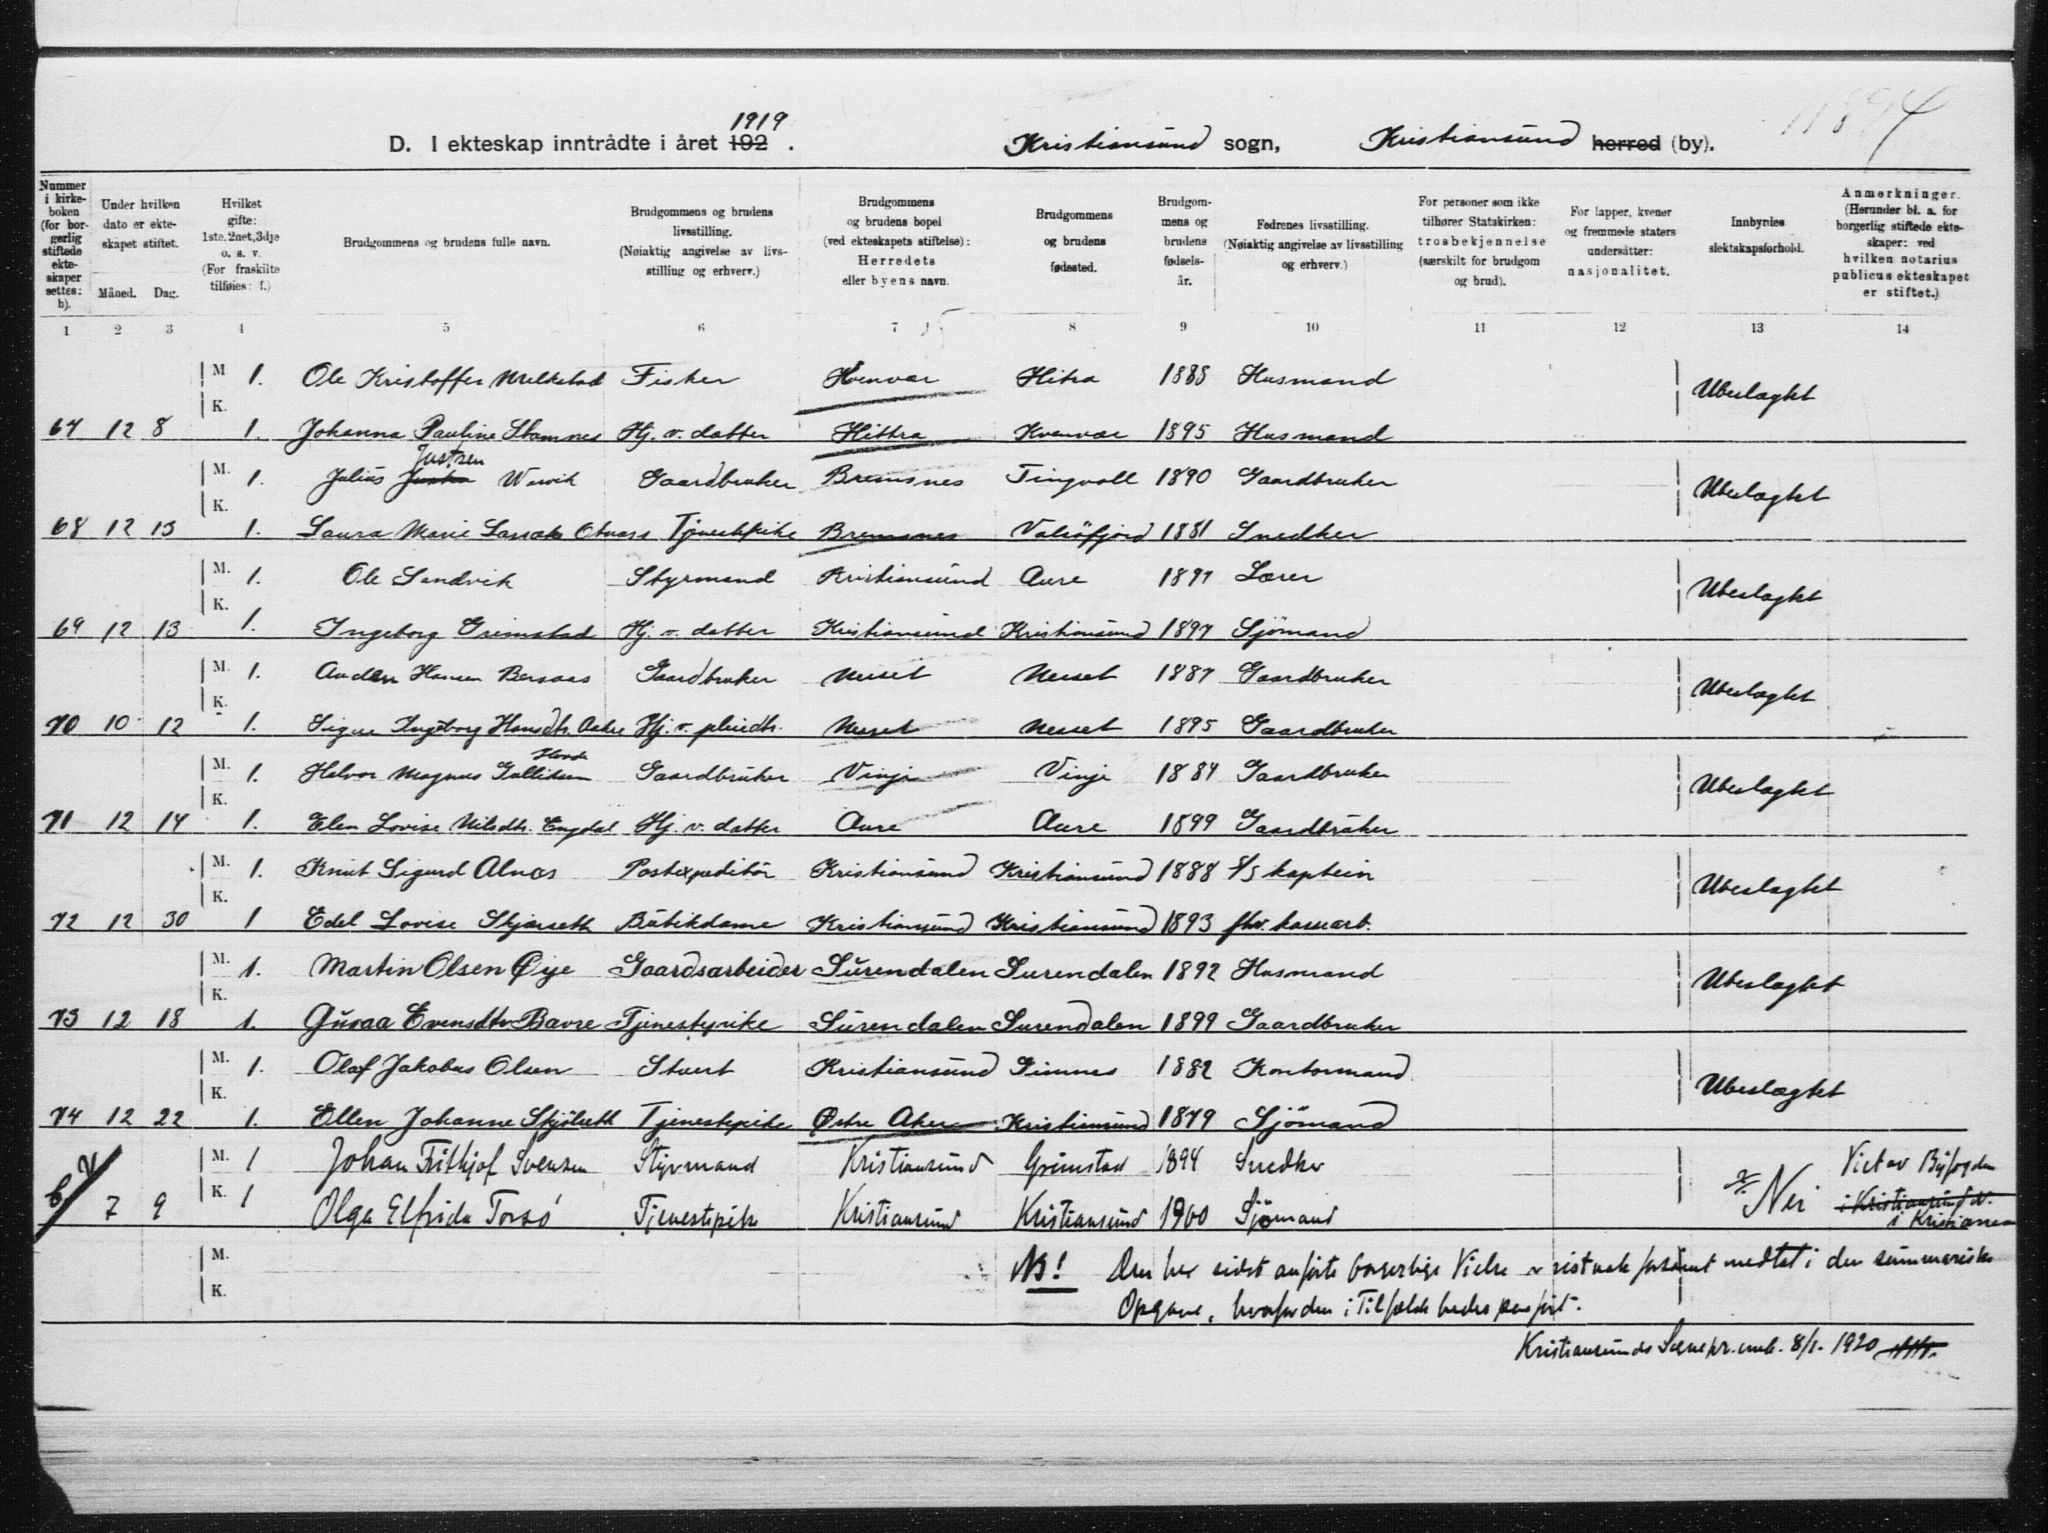 11894
1919
D. I ekteskap inntrådte i året 192 . Kristiansund sogn, Kristiansund herred (by).
Nummer i kirke-boken (for bor-gerlig stiftede ekte-skaper settes: b).
Under hvilken dato er ekte-skapet stiftet.
Måned. Dag.
Hvilket gifte: 1ste, 2net, 3dje o. s. v. (For fraskilte tilføies: f.)
Brudgommens og brudens fulle navn.
Brudgommens og brudens livsstilling. (Nøiaktig angivelse av livs-stilling og erhverv.)
Brudgommens og brudens bopel (ved ekteskapets stiftelse): Herredets eller byens navn.
Brudgommens og brudens fødested.
Brudgom-mens og brudens fødsels-år.
Fedrenes livsstilling. (Nøiaktig angivelse av livsstilling og erhverv.)
For personer som ikke tilhører Statskirken: trosbekjennelse (særskilt for brudgom og brud).
For lapper, kvener og fremmede staters undersåtter: nasjonalitet.
Innbyrdes slektskapsforhold.
Anmerkninger. (Herunder bl. a. for borgerlig stiftede ekte-skaper: ved hvilken notarius publicus ekteskapet er stiftet.)
1 2 3 4 5 6 7 8 9 10 11 12 13 14
M 1. Ole Kristoffer Melkstad Fisker Hvenvær Hitra 1885 Husmand
K. Ubeslægtet
67 12 8 1. Johanna Pauline Stamnes Hj. v. datter Hittra Kvenvær 1895 Husmand
Justsen
M. 1. Julius Warvik Gaardbruker Bremsnes Tingvoll 1890 Gaardbruker
K. Ubeslægtet
68 12 13 1. Laura Marie Tjenestepike Bremsnes Valsöfjord 1881 Snedker
M. 1. Ole Sandvik Styrmand Kristiansund Aure 1891 Lærer
K. Ubeslægtet
69 12 13 1. Ingeborg Grimstad Hj. v. datter Kristiansund Kristiansund 1897 Sjömand
M. 1. Hansen Bersaas Gaardbruker Nesset Nesset 1887 Gaardbruker
K. Ubeslægtet
70 10 12 1. Signe Ingeborg Hansdtr. Aaker Hj. v. pleiedtr. Nesset Nesset 1895 Gaardbruker
M. 1. Halvor Magnus Gulliksen Gaardbruker Vinje Vinje 1884 Gaardbruker
K. Ubeslægtet
71 12 14 1. Elen Lovise Nilsdtr. Engdal Hj. v. datter Aure Aure 1899 Gaardbruker
M. 1. Knut Sigurd Alnæs Postexpeditör Kristiansund Kristiansund 1888 S/S kaptein
K. Ubeslægtet
72 12 30 1 Edel Lovise Skjærseth Butikdame Kristiansund Kristiansund 1893 fhv.
M. 1. Martin Olsen Øye Gaardsarbeider Surendalen Surendalen 1892 Husmand
K. Ubeslægtet
73 12 18 1. Guroa Evensdtr Bævre Tjenestepike Surendalen Surendalen 1899 Gaardbruker
M. 1. Olaf Jakobus Olsen Stuert Kristiansund Gimnes 1882 Kontormand
K. Ubeslægtet
74 12 22 1. Ellen Johanne Skjölseth Tjenestepike Østre Aker Kristiansund 1879 Sjömand
M. 1 Johan Frithjof Svensen Styrmand Kristiansund Grimstad 1894 Snedker Viet av Byfogden
b 7 9 K. 1 Olga Elfrida Torsö Tjenestepike Kristiansund Kristiansund 1900 Sjömand Nei i Kristiansund N.
i Kristiansa
M. NB! Den her sidst anførte borgerlige Vielse er nok forsømt medtat i den summariske
K. Opgave, hvorfor den i Tilfælde bedes paaført.
Kristiansunds Sognepr.emb. 8/1. 1920